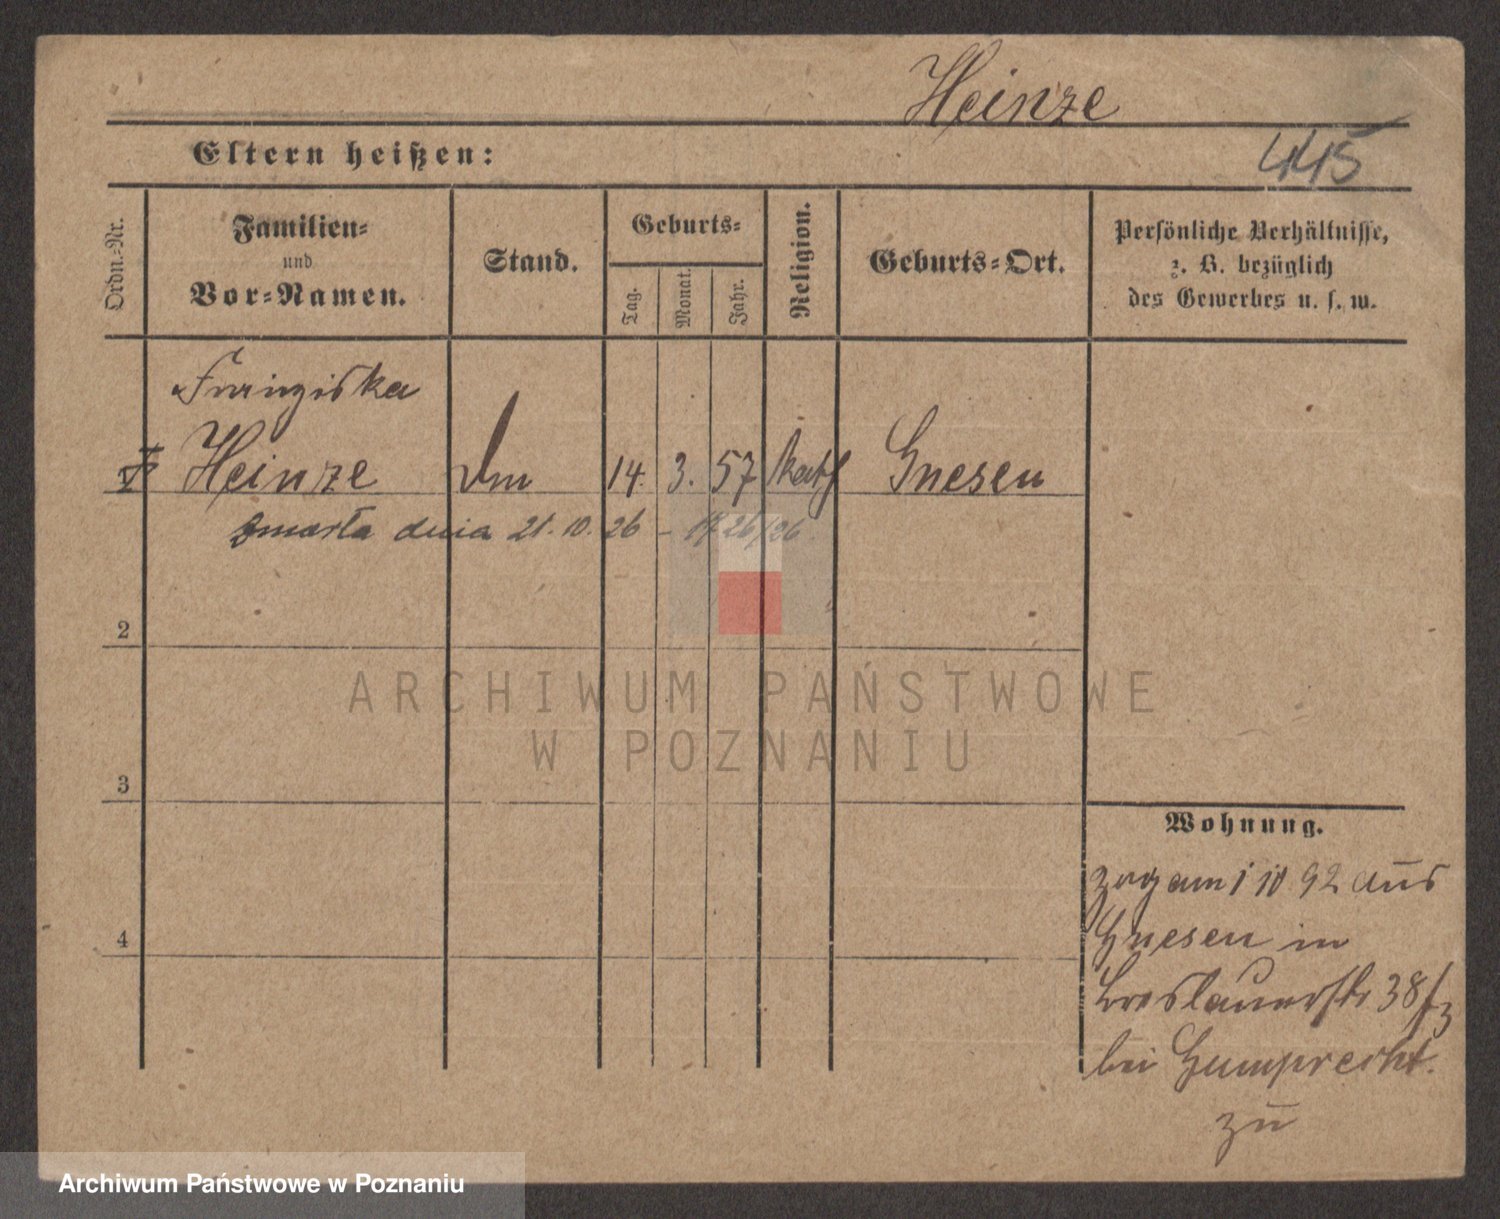 Heinze
Eltern heißen:
445
Ordn.-Nr.
Familien-
und
Vor-Namen.
Stand.
Geburts-
Tag.
Monat.
Jahr.
Religion.
Geburts-Ort.
Persönliche Verhältnisse,
z. B. bezüglich
des Gewerbes u. s. w.
Franziska
Heinze
14. 3. 57 kath Gnesen
zmarła dnia 21.10.26 - 26/26
2
3
4
Wohnung.
zog am 1 10 92 aus
Gnesen in
Breslauerstr 38
bei Gumprecht.
zu
ARCHIWUM PAŃSTWOWE
W POZNANIU
Archiwum Państwowe w Poznaniu